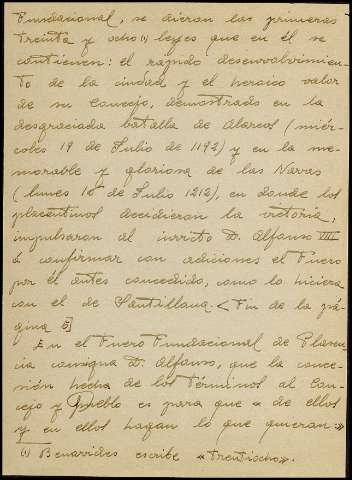 Fundacional, se dieran las primeras
treinta y ocho (1) leyes que en él se
contienen: el rápido desenvolvimien-
to de la ciudad y el heroico valor
de su Concejo, demostrado en la
desgraciada batalla de Alarcos (miér-
coles 19 de Julio de 1192) y en la me-
morable y gloriosa de las Navas
(lunes 16 de Julio 1212), en donde los
placentinos decidieran la victoria,
impulsaron al invicto D. Alfonso VIII
á confirmar con adiciones el Fuero
por él antes concedido, como lo hiciera
con el de Santillana. < Fin de la pá-
gina 5]
En el Fuero Fundacional de Plasen-
cia consigna D. Alfonso, que la conce-
sión hecha de los términos al Con-
cejo y Pueblo es para que « de ellos
y en ellos hagan lo que quieran: »
(1) Benavides escribe « treintiocho ».